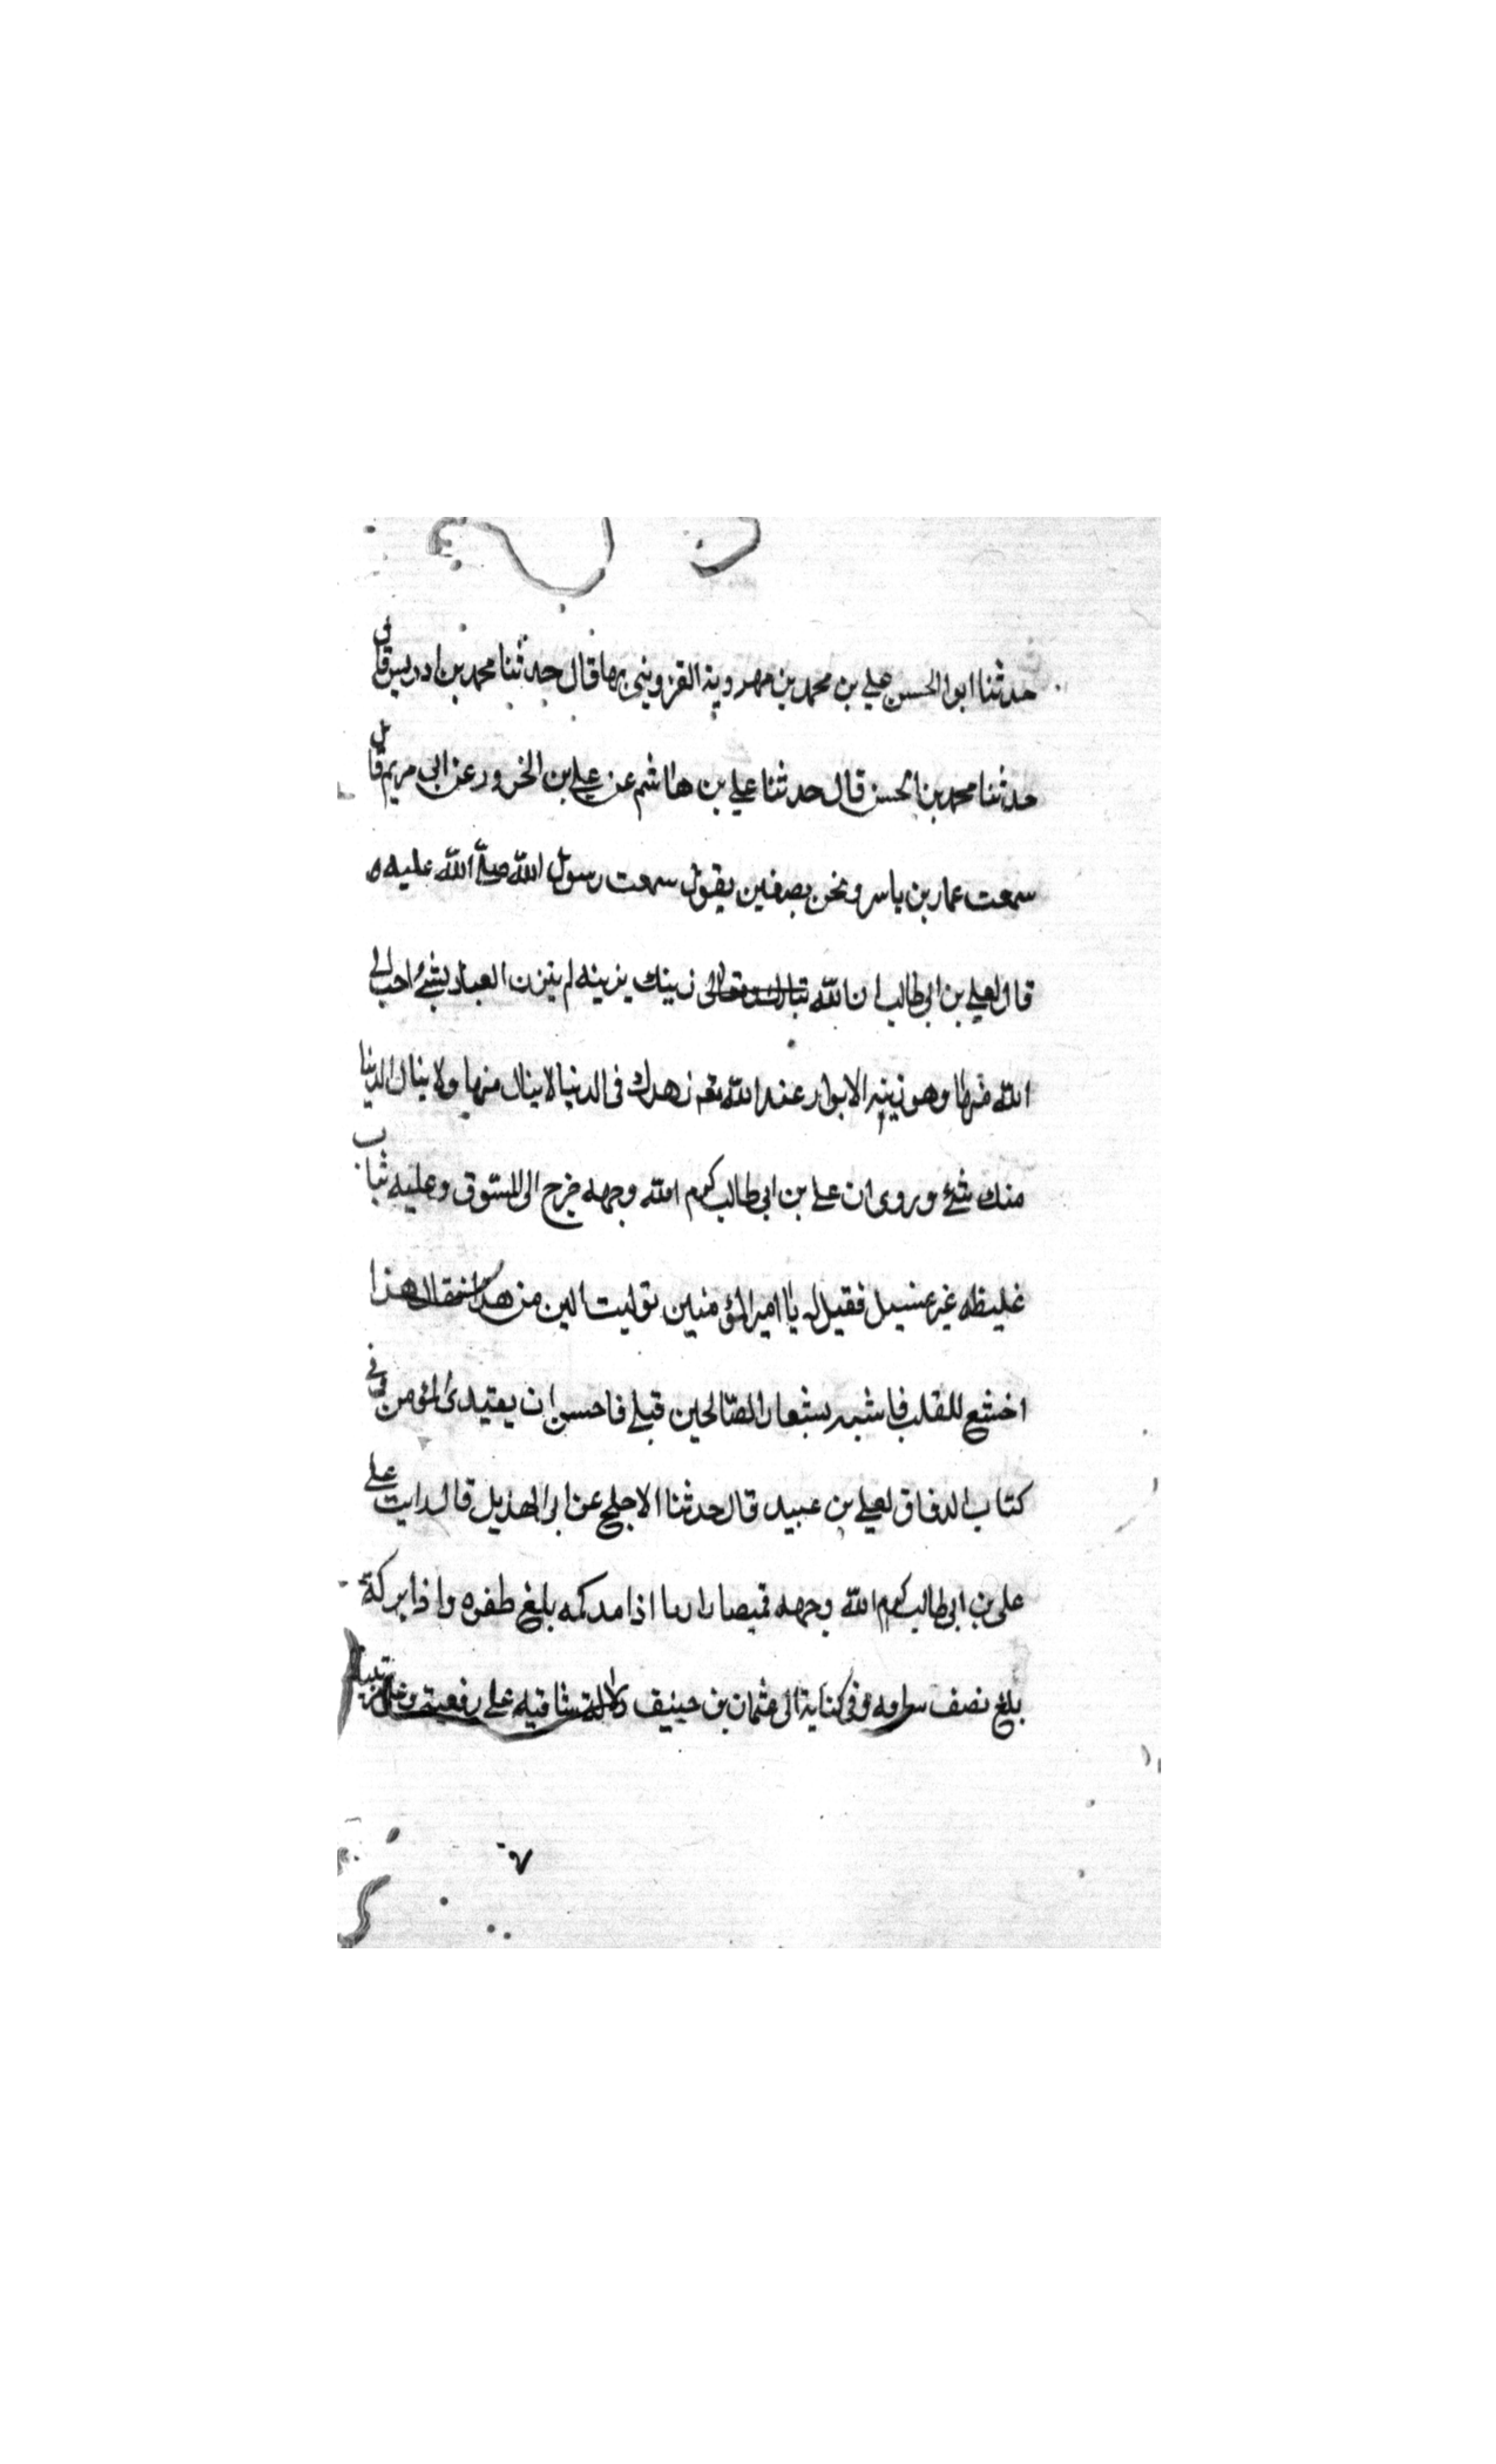 حدثنا ابوالحسن علي بن محمد بن مهروية القزويني بها قال حدثنا محمد بن ادريس قال
حدثنا محمد بن الحسن قال حدثنا علي بن هاشم عن علي بن الحزور عن ابي مريم قال
سمعت عمار بن ياسر ونحن بصفين يقول سمعت رسول الله صلى الله عليه
قال لعلي بن ابي طالب ان الله تبارك وتعالى زينك بزينه لم يتزن العباد بشئ احب الى
الله منها وهو زينه الابرار عند الله زهدك في الدنيا لا ينال منها ولا ينال الدنيا
منك شئ وروى ان علي بن ابي طالب كرم الله وجهه خرج الى السوق وعليه ثياب
غليظه غير غسيل فقيل له يا امير المؤمنين توليت الين من هذا فقال هذا
اخشع للقلب فاشبه بشعار الصالحين قبلي فاحسن ان يقتدى المؤمن في
كتاب لعلي بن عبيد قال حدثنا الاجلح عن ابو الهذيل قال رايت على
علي بن ابي طالب كرم الله وجهه قميصا اذا مد كمه بلغ ظفره واذا تركة
بلغ نصف وفي كتابة الى عثمان بن حنيف على